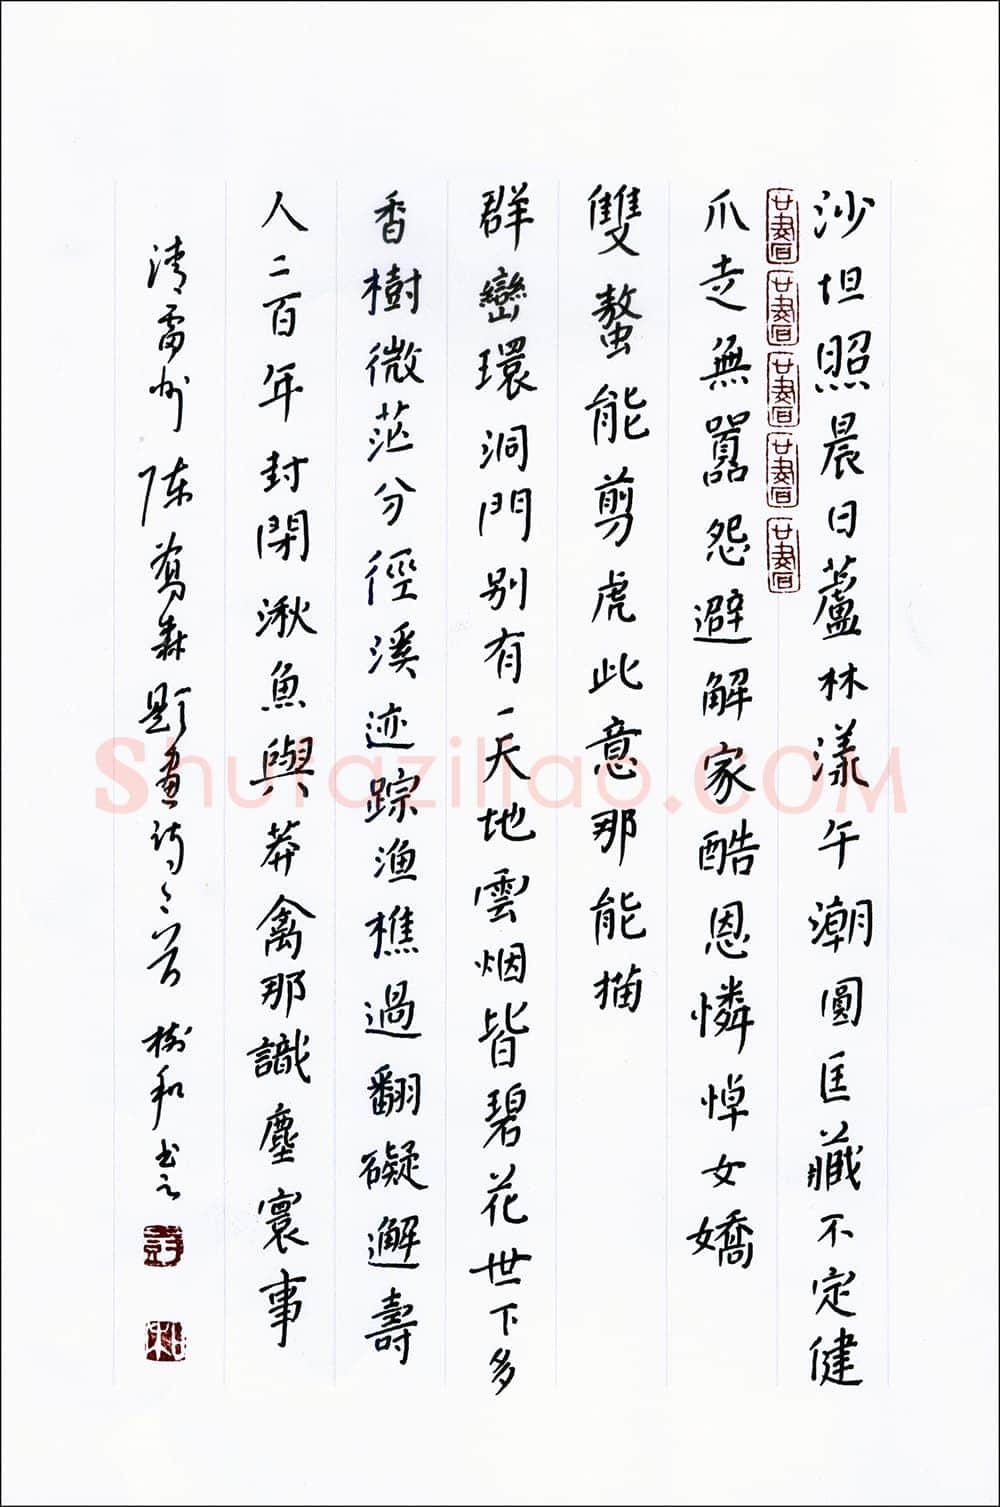 沙坦照晨日蘆林漾午潮圓匡藏不定健
爪走無囂怨避解家酷恩憐悼女嬌
雙螯能剪虎此意那能描
群巒環洞門别有一天地雲烟皆碧花世下多
香樹微茫分徑溪迹踪漁樵過翻礙邂壽
人二百年封閉湫魚與莽禽那識塵寰事
清雷州陳喬森題畫詩二首 樹和書
Shufaziliao.COM